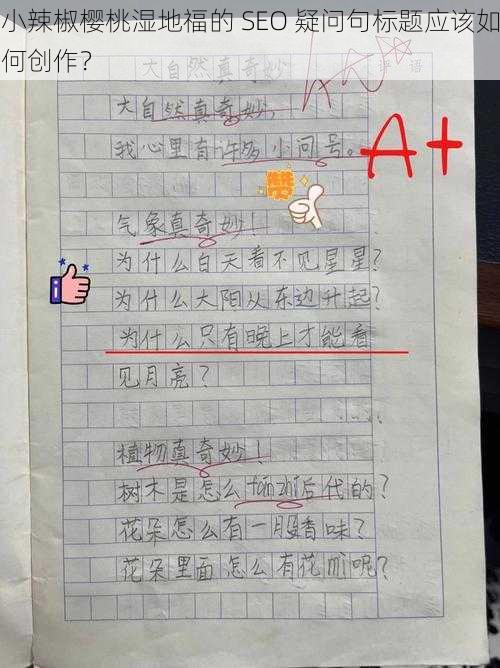 小辣椒樱桃湿地福的 SEO 疑问句标题应该如
何创作？
大自然真奇妙
评 语
大自然真奇妙，
我心里有许多小问号。
A+
气象真奇妙！
为什么白天看不见星星？
为什么太阳从东边升起？
为什么只有晚上才能看
见月亮？
....
植物真奇妙！
树木是怎么后代的？
花朵怎么有一股香味？
花朵里面怎么有花mì呢？